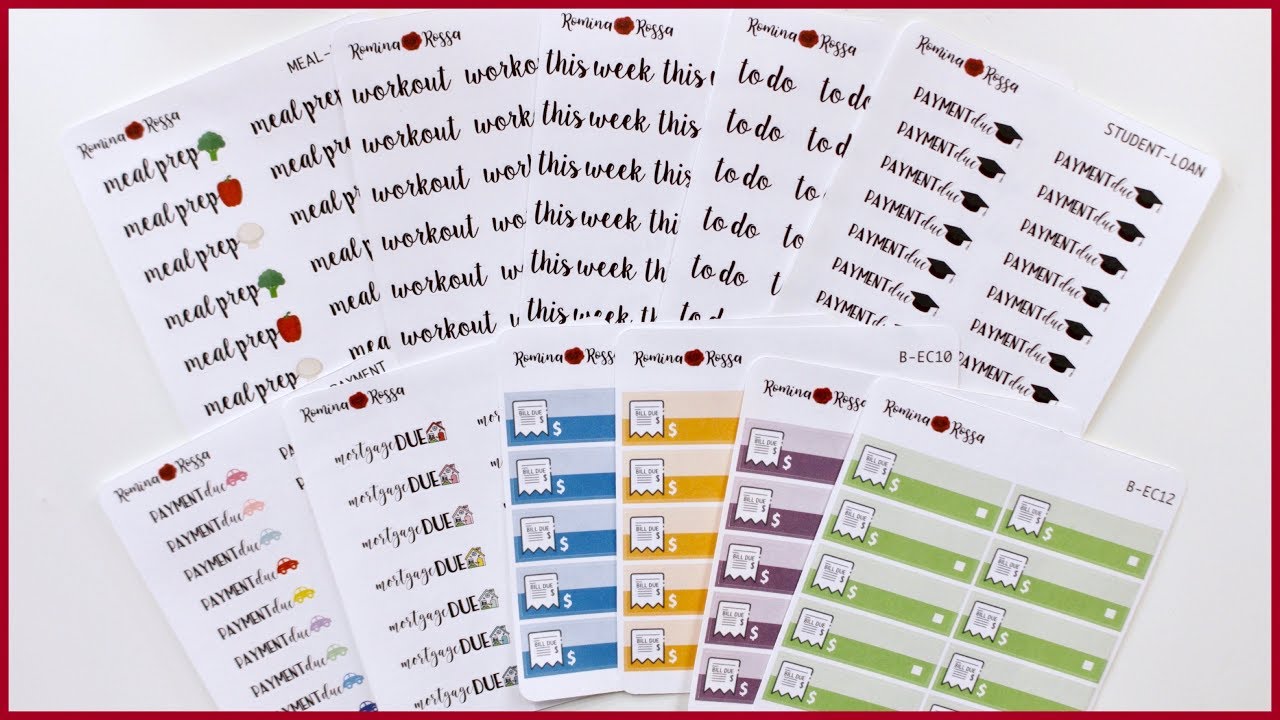 Romina Rossa
MEAL-
meal prep meal prep
meal prep meal prep
meal prep meal
meal prep meal
meal prep meal
meal prep
Romina Rossa
workout workou
workout work
workout work
workout work
workout wor
workout w
Romina Rossa
this week this w
this week this
this week this
this week thi
this week th
this week t
Romina Rossa
to do to do
to do to do
to do to d
to do to
to do to
to do t
Romina Rossa
STUDENT-LOAN
PAYMENT due PAYMENT due
PAYMENT due PAYMENT due
PAYMENT due PAYMENT due
PAYMENT due PAYMENT due
PAYMENT due PAYMENT due
PAYMENT due PAYMENT due
PAYMENT due PAYMENT due
PAYMENT
Romina Rossa
PAYMENT due
PAYMENT due
PAYMENT due
PAYMENT due
PAYMENT due
PAYMENT due
PAYMENT due
PAYMENT due
Romina Rossa
mortgage DUE
mortgage DUE
mortgage DUE
mortgage DUE
mortgage DUE
mortgage DUE
mortgage DUE
Romina Rossa
BILL DUE $ $
BILL DUE $ $
BILL DUE $ $
BILL DUE $ $
BILL DUE $ $
Romina Rossa
B-EC10
BILL DUE $ $
BILL DUE $ $
BILL DUE $ $
BILL DUE $ $
BILL DUE $ $
Romina Rossa
BILL DUE $ $
BILL DUE $ $
BILL DUE $ $
BILL DUE $ $
BILL DUE $ $
Romina Rossa
B-EC12
BILL DUE $ $ BILL DUE $ $
BILL DUE $ $ BILL DUE $ $
BILL DUE $ $ BILL DUE $ $
BILL DUE $ $ BILL DUE $ $
BILL DUE $ $